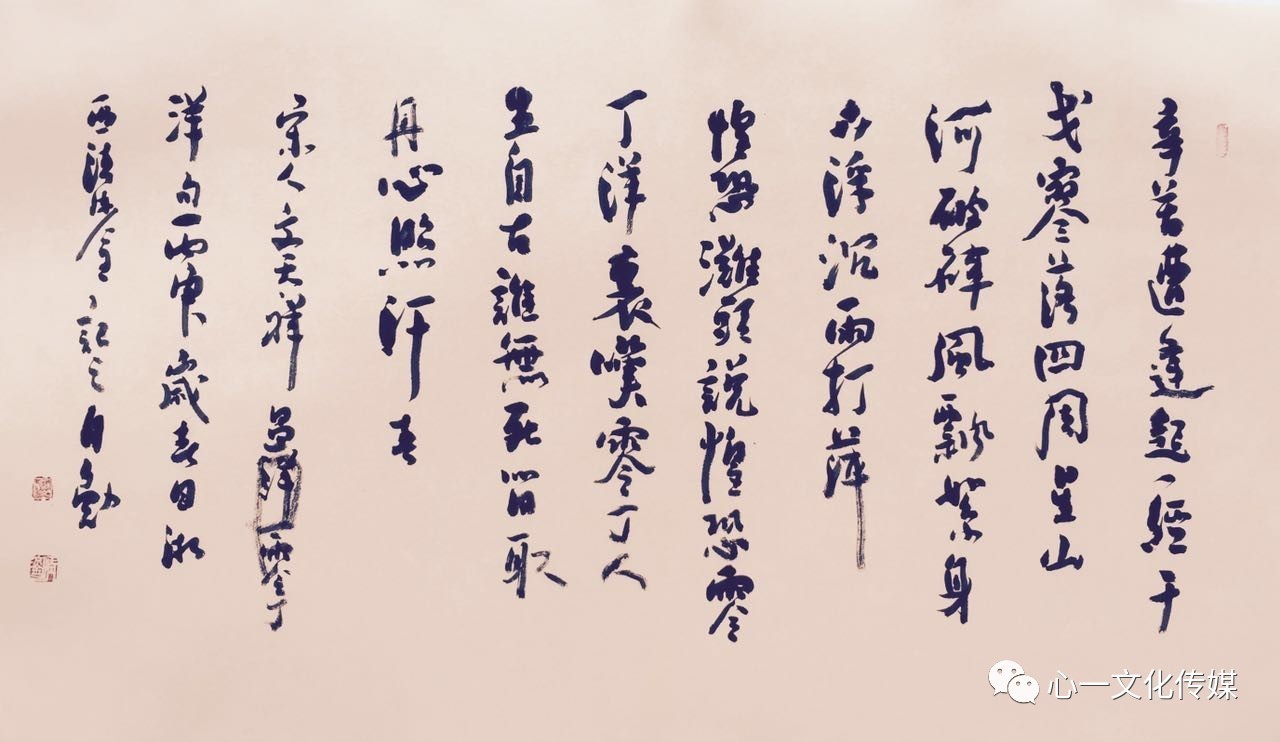 辛苦遭逢起一經干
戈寥落四周星山
河破碎風飄絮身
世浮沉雨打萍
惶恐灘頭說惶恐零
丁洋裏嘆零丁人
生自古誰無死留取
丹心照汗青
宋人文天祥過零丁
洋句丙申歲春日
西記之自勳
心一文化传媒